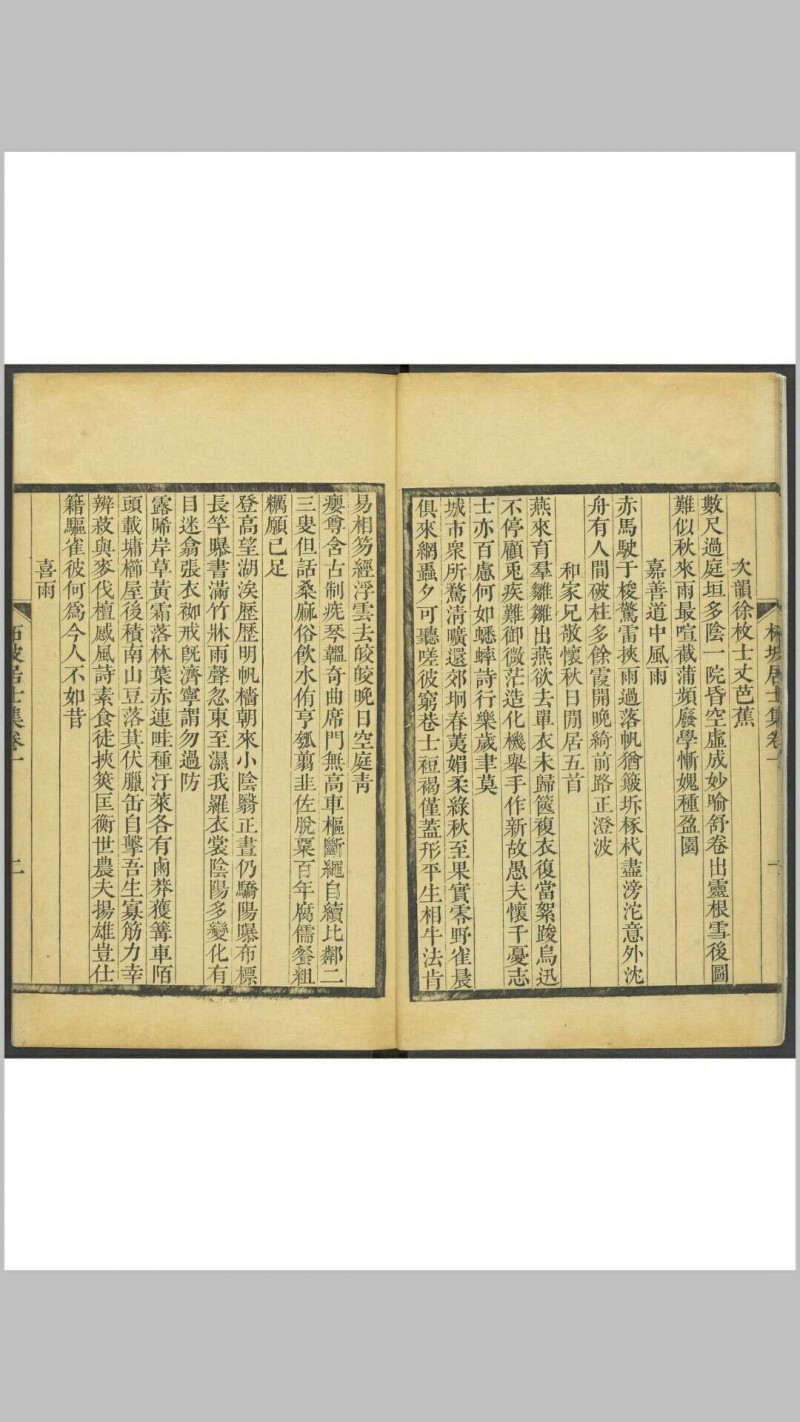 居士集卷一
一
次韻徐枚士丈芭蕉
數尺過庭垣多陰一院昏空虛成妙喻舒卷出靈根雪後圖
難似秋來雨最喧截蒲頻廢學慚媿種盈園
嘉善道中風雨
赤馬駛于梭驚雷挾雨過落帆猶簸坼椓杙盡滂沱意外沈
舟有人間破柱多餘霞開晚綺前路正澄波
和家兄敬懷秋日閒居五首
燕來育羣雛雛出燕欲去單衣未歸篋複衣復當絮踆烏迅
不停顧兎疾難御微茫造化機舉手作新故愚夫懷千憂志
士亦百慮何如蟋蟀詩行樂歲聿莫
城市衆所騖淸曠還郊坰春荑媚柔綠秋至果實零野雀晨
俱來網蟲夕可聽嗟彼窮巷士裋褐僅蓋形平生相牛法肯
易相笏經浮雲去皎皎晚日空庭靑
癭尊含古制疣琴韞奇曲席門無高車樞斷繩自續比鄰二
三叟但話桑麻俗飲水侑亨瓠翦韭佐脫粟百年腐儒餐粗
糲願已足
登高望湖涘歷歷明帆檣朝來小陰翳正晝仍驕陽曝布標
長竿曝書滿竹牀雨聲忽東至濕我羅衣裳陰陽多變化有
目迷翕張衣袽戒旣濟寧謂勿過防
露晞岸草黃霜落林葉赤連畦種汙萊各有鹵莽獲篝車陌
頭載墉櫛屋後積南山豆落萁伏臘缶自擊吾生寡筋力幸
辨菽與麥伐檀感風詩素食徒挾筴匡衡世農夫揚雄豈仕
籍驅雀彼何爲今人不如昔
喜雨
居士集卷一
二